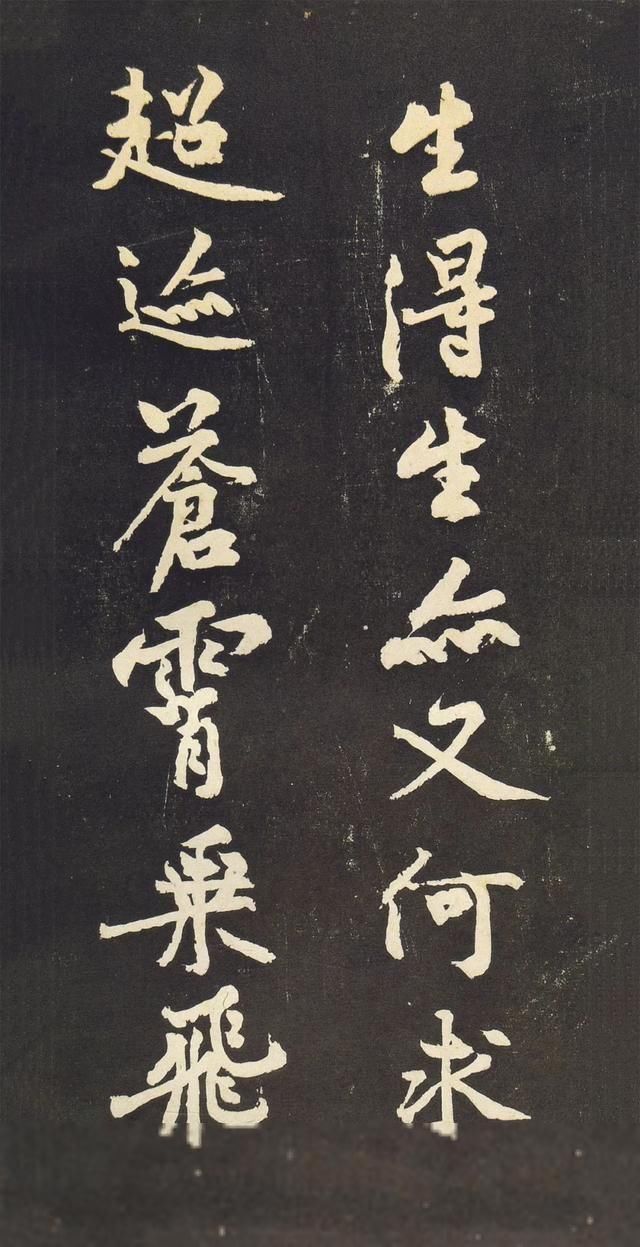 生得生亦又何求
超迹蒼霄乘飛